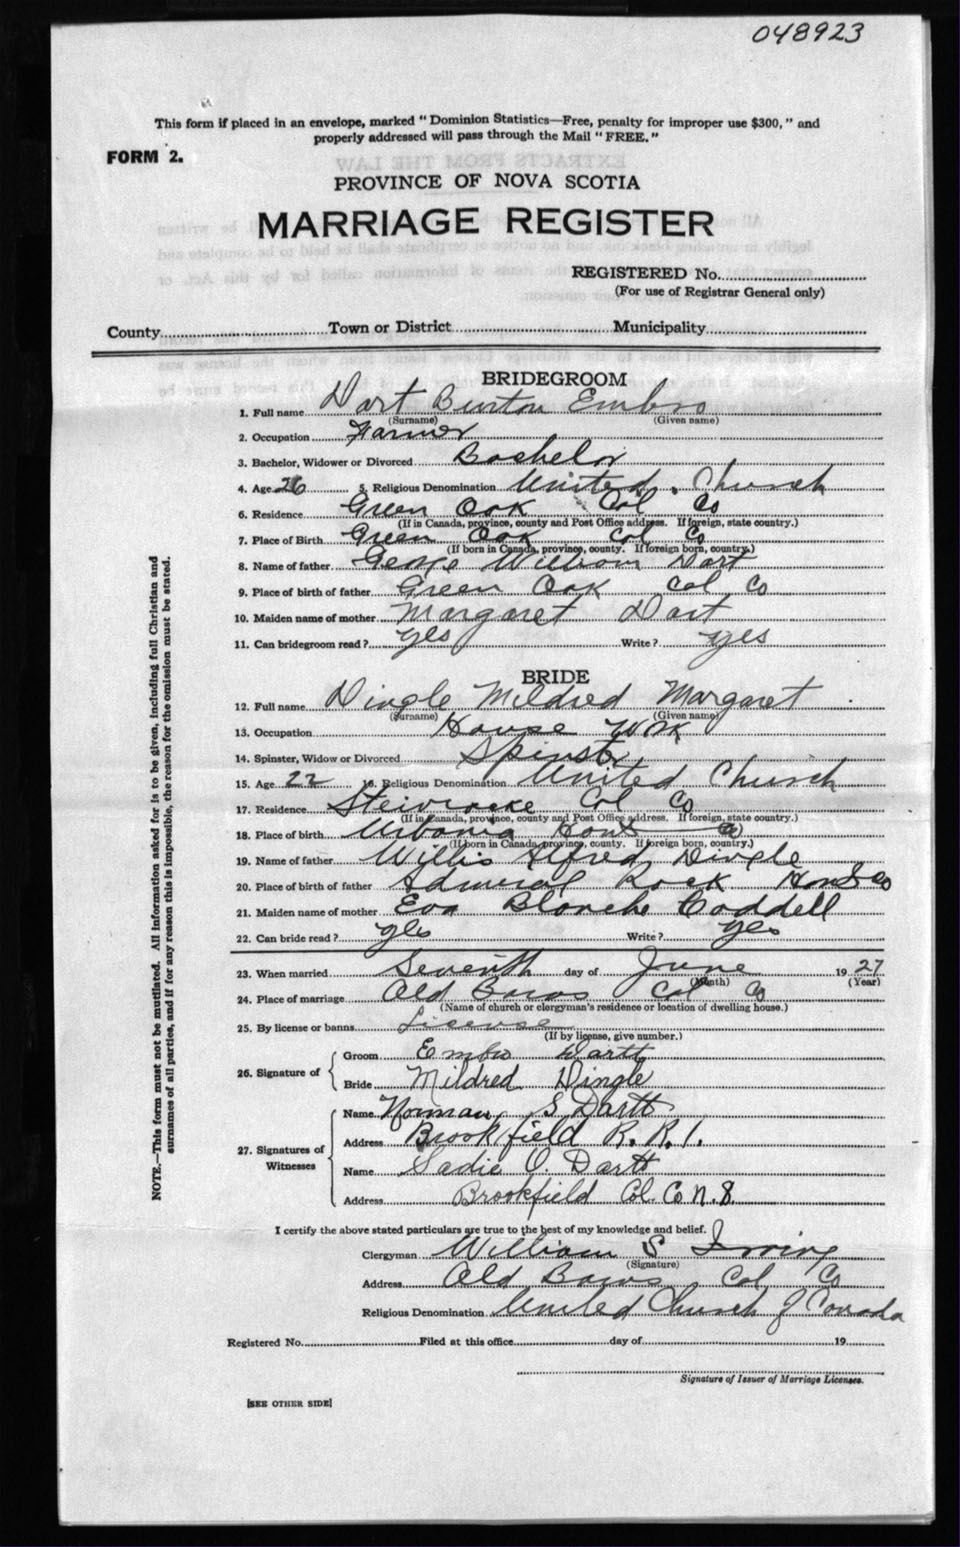 048923
This form if placed in an envelope, marked "Dominion Statistics—Free, penalty for improper use $300," and
properly addressed will pass through the Mail "FREE."
FORM 2.
PROVINCE OF NOVA SCOTIA
MARRIAGE REGISTER
REGISTERED No.
(For use of Registrar General only)
County Town or District Municipality
BRIDEGROOM
1. Full name Dart Burton Embro
(Surname) (Given name)
2. Occupation Farmer
3. Bachelor, Widower or Divorced Bachelor
4. Age 26 5. Religious Denomination United Church
6. Residence Green Oak Col Co
(If in Canada, province, county and Post Office address. If foreign, state country.)
7. Place of Birth Green Oak Col Co
(If born in Canada, province, county. If foreign born, country.)
8. Name of father George William Dart
9. Place of birth of father Green Oak Col Co
10. Maiden name of mother Margaret Dart
11. Can bridegroom read? yes Write? yes
BRIDE
12. Full name Dingle Mildred Margaret
(Surname) (Given name)
13. Occupation House Work
14. Spinster, Widow or Divorced Spinster
15. Age 22 16. Religious Denomination United Church
17. Residence Col Co
(If in Canada, province, county and Post Office address. If foreign, state country.)
18. Place of birth Urbania Hants Co
(If born in Canada, province, county. If foreign born, country.)
19. Name of father Willis Alfred Dingle
20. Place of birth of father Admiral Rock Hants Co
21. Maiden name of mother Eva Blanche Caddell
22. Can bride read? yes Write? yes
23. When married Seventh day of June 1927
(Month) (Year)
24. Place of marriage Old Barns Col Co
(Name of church or clergyman's residence or location of dwelling house.)
25. By license or banns License
(If by license, give number.)
26. Signature of
Groom Embro Dartt
Bride Mildred Dingle
27. Signatures of Witnesses
Name Norman S Dartt
Address Brookfield R.R.1.
Name Sadie O. Dartt
Address Brookfield Col. Co N.S
I certify the above stated particulars are true to the best of my knowledge and belief.
Clergyman William S Irving
(Signature)
Address Old Barns Col Co
Religious Denomination United Church of Canada
Registered No. Filed at this office day of 19
Signature of Issuer of Marriage Licenses.
[SEE OTHER SIDE]
NOTE.—This form must not be mutilated. All information asked for is to be given, including full Christian and
surnames of all parties, and if for any reason this is impossible, the reason for the omission must be stated.